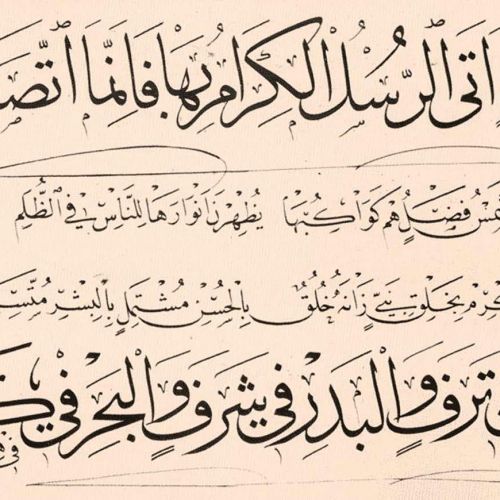 اَتَى الرُّسُلُ الْكِرَامُ بِهَا فَاِنَّمَا اتَّصَ
مْسُ فَضْلٍ هُمْ كَوَاكِبُهَا يُظْهِرْنَ اَنْوَارَهَا لِلنَّاسِ فِي الظُّلَمِ
كْرِمْ بِخَلْقِ نَبِيٍّ زَانَهُ خُلُقٌ بِالْحُسْنِ مُشْتَمِلٍ بِالْبِشْرِ مُتَّسِ
تَرَفٍ وَالْبَدْرِ فِي شَرَفٍ وَالْبَحْرِ فِي كَ